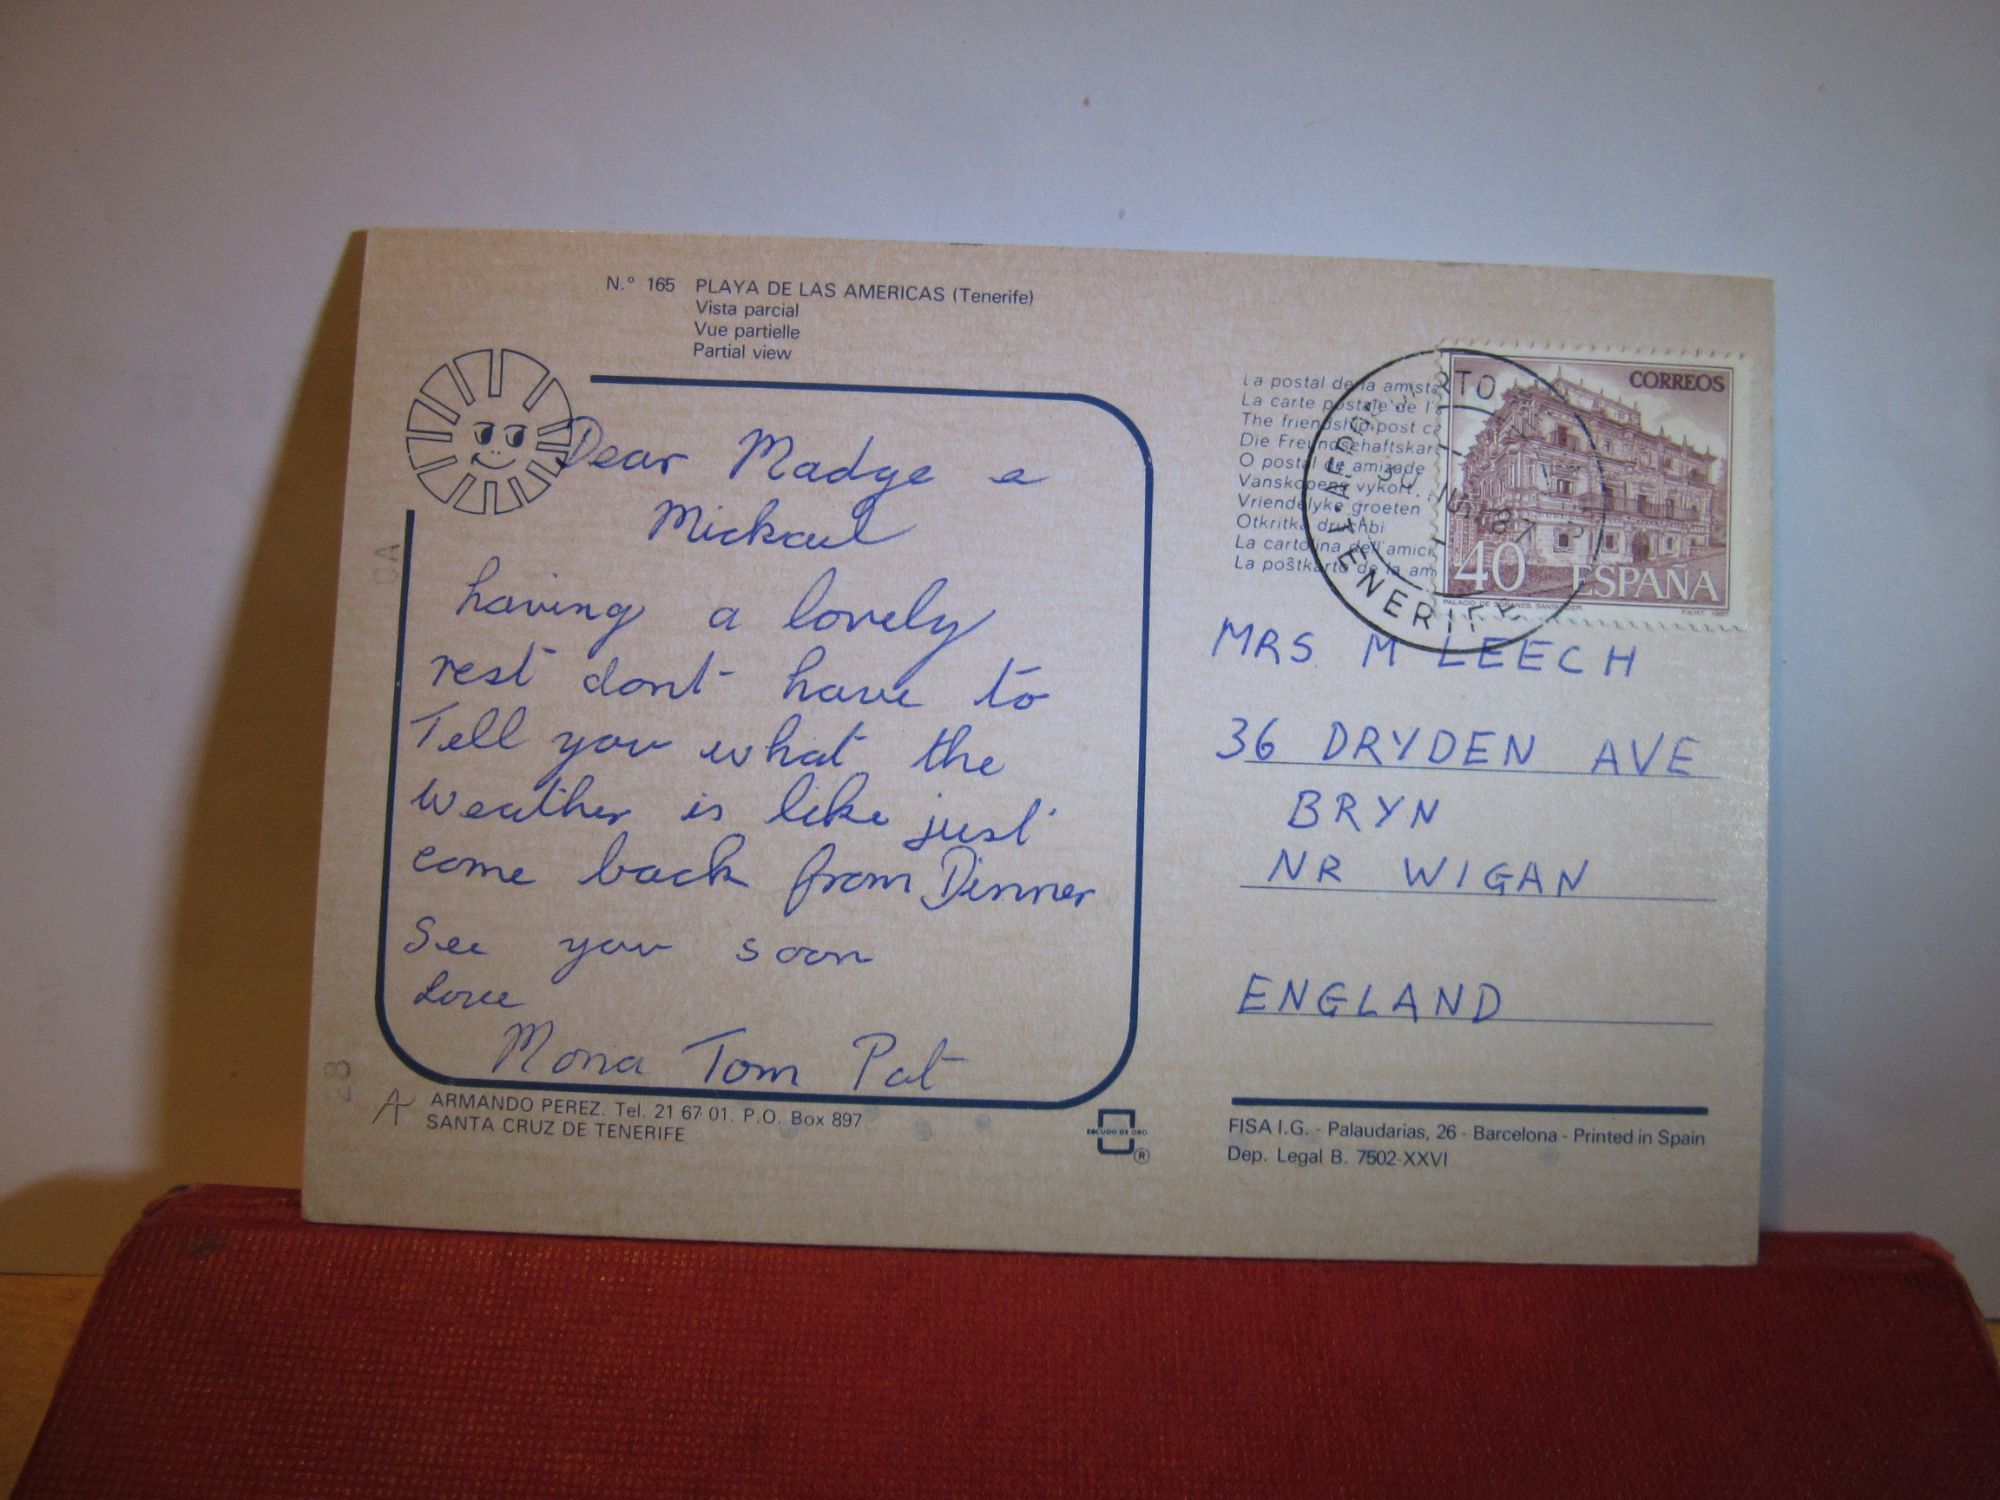 N.º 165 PLAYA DE LAS AMERICAS (Tenerife)
Vista parcial
Vue partielle
Partial view
Dear Madge e
Mickael
having a lovely
rest dont have to
Tell you what the
weather is like just
come back from Dinner
See you soon
Love
Mona Tom Pat
ARMANDO PEREZ. Tel. 21 67 01. P.O. Box 897
SANTA CRUZ DE TENERIFE
ESCUDO DE ORO
®
La postal de la amist
La carte postale de l'a
The friendship post ca
Die Freundschaftskar
O postal de amizade
Vanskapens vykort.
Vriendelyke groeten
Otkritka druzhbi
La cartolina dell'amici
La poŝtkarto de la am
CORREOS
40 ESPAÑA
PALACIO DE SOÑANES. SANTANDER
F.N.M.T. 1987
87
TENERIFE
MRS M LEECH
36 DRYDEN AVE
BRYN
NR WIGAN
ENGLAND
FISA I.G. - Palaudarias, 26 - Barcelona - Printed in Spain
Dep. Legal B. 7502-XXVI
CA
28